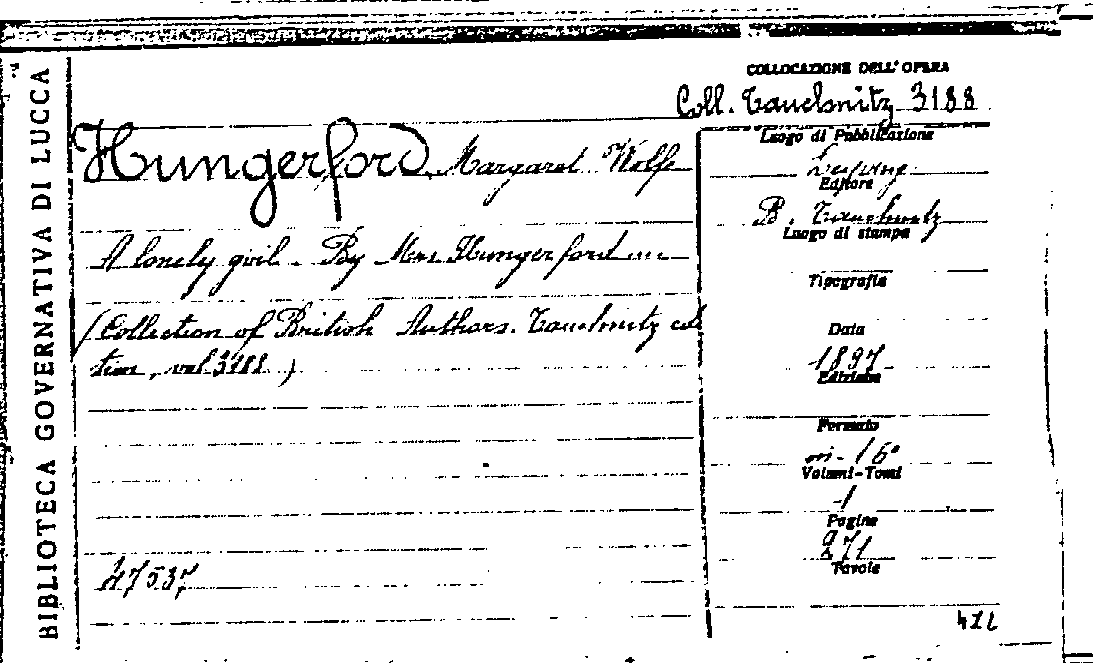 BIBLIOTECA GOVERNATIVA DI LUCCA
COLLOCAZIONE DELL'OPERA
Coll. Tauchnitz 3188
Hungerford, Margaret Wolfe
A lonely girl. By Mrs Hungerford ...
(Collection of British Authors. Tauchnitz edi
tion, vol 3188)
47537
Luogo di Pubblicazione
Leipzig
Editore
B. Tauchnitz
Luogo di stampa
Tipografia
Data
1897
Edizione
Formato
in-16°
Volumi-Tomi
1
Pagine
271
Tavole